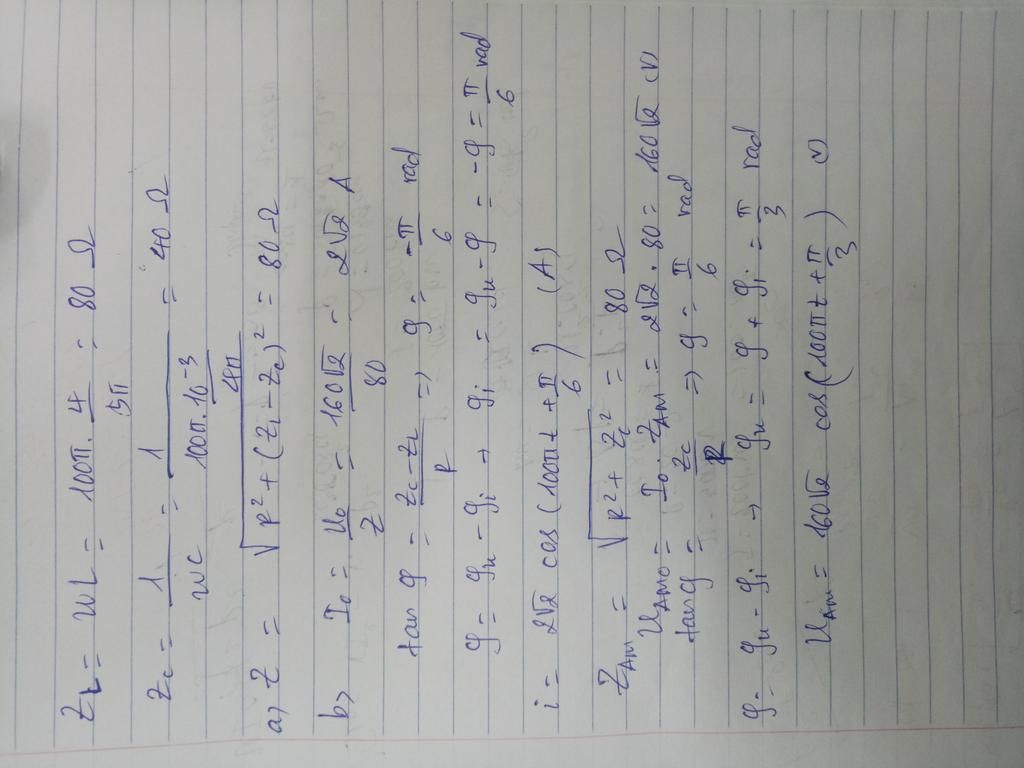 Z_L = ωL = 100π . 4/5π = 80 Ω
Z_C = 1/ωC = 1/(100π . 10^-3/4π) = 40 Ω
a) Z = √(R² + (Z_L - Z_C)²) = 80 Ω
b) I₀ = U₀/Z = 160√2/80 = 2√2 A
tan φ = (Z_C - Z_L)/R => φ = -π/6 rad
φ = φu - φi → φi = φu - φ = -φ = π/6 rad
i = 2√2 cos(100πt + π/6) (A)
Z_AM = √(R² + Z_C²) = 80 Ω
U_AM0 = I₀ . Z_AM = 2√2 . 80 = 160√2 (V)
tan φ = Z_C/R => φ = π/6 rad
φ = φu - φi → φu = φ + φi = π/3 rad
u_AM = 160√2 cos(100πt + π/3) (V)